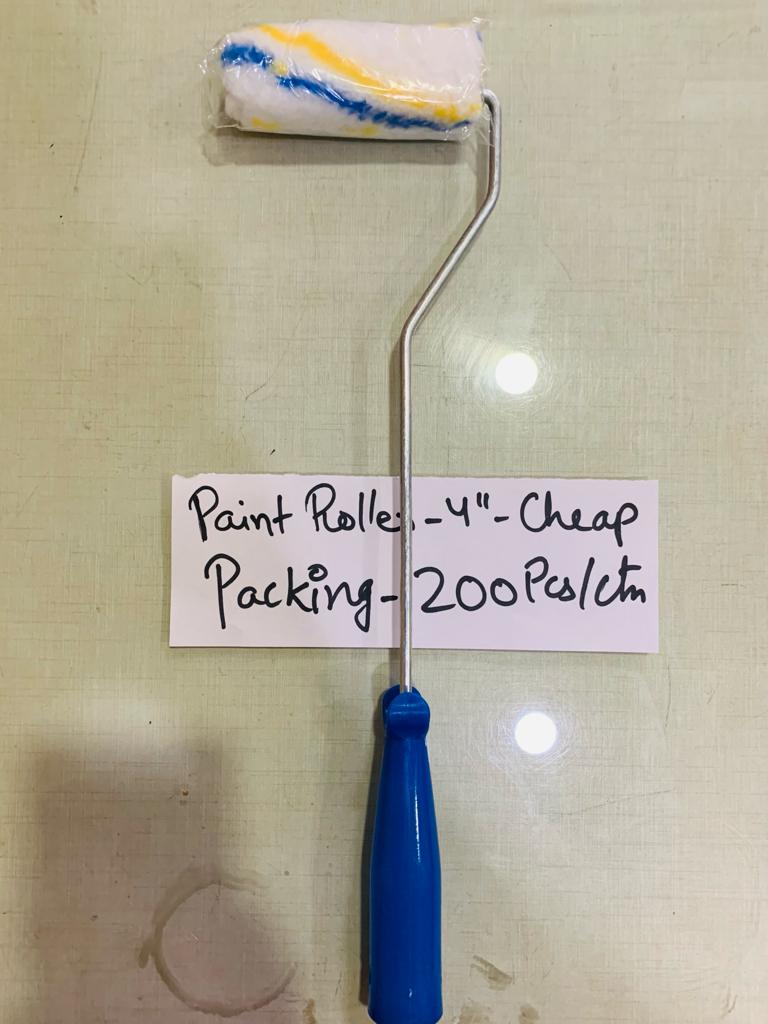 Paint Roller-4"-Cheap
Packing-200Pcs/ctn